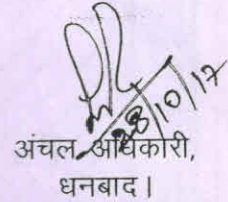 28/10/17
अंचल अधिकारी,
धनबाद।